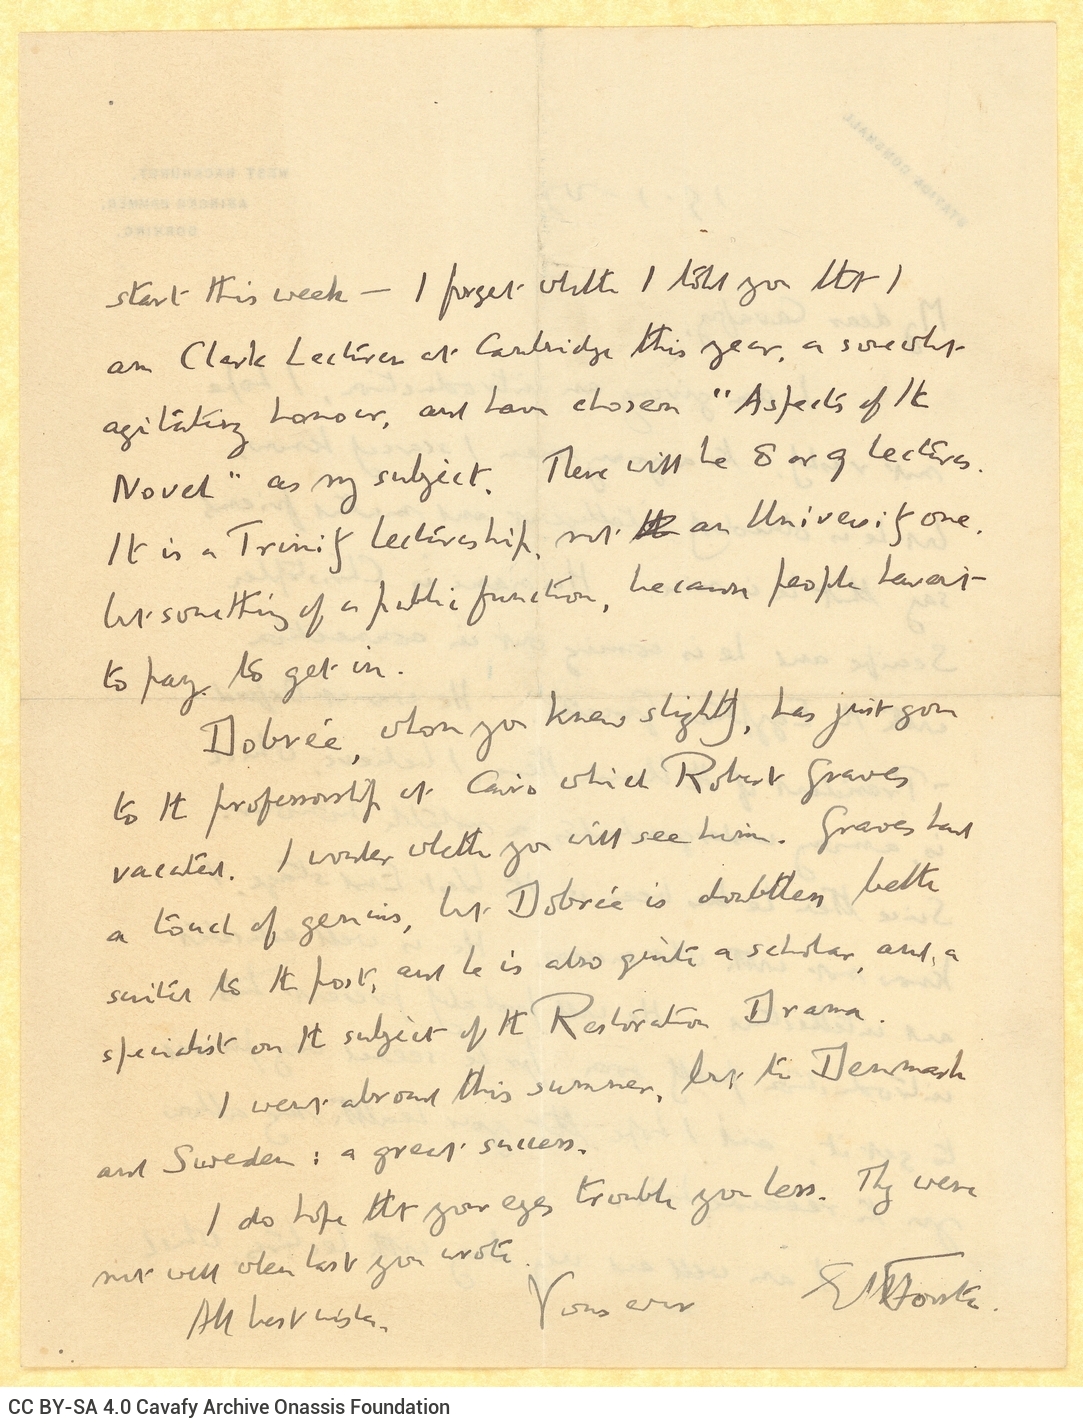 start this week — I forget whether I told you that I
am Clark Lecturer at Cambridge this year, a somewhat
agitating honour, and have chosen "Aspects of the
Novel" as my subject. There will be 8 or 9 lectures.
It is a Trinity lectureship, not an University one,
but something of a public function, because people haven't
to pay to get in.
Dobrée, whom you knew slightly, has just gone
to the professorship at Cairo which Robert Graves
vacated. I wonder whether you will see him. Graves had
a touch of genius, but Dobrée is doubtless better
suited to the post, and he is also quite a scholar, and a
specialist on the subject of the Restoration Drama.
I went abroad this summer, but to Denmark
and Sweden: a great success.
I do hope that your eyes trouble you less. They were
not well when last you wrote.
All best wishes.
Yours ever
EMForster.
CC BY-SA 4.0 Cavafy Archive Onassis Foundation